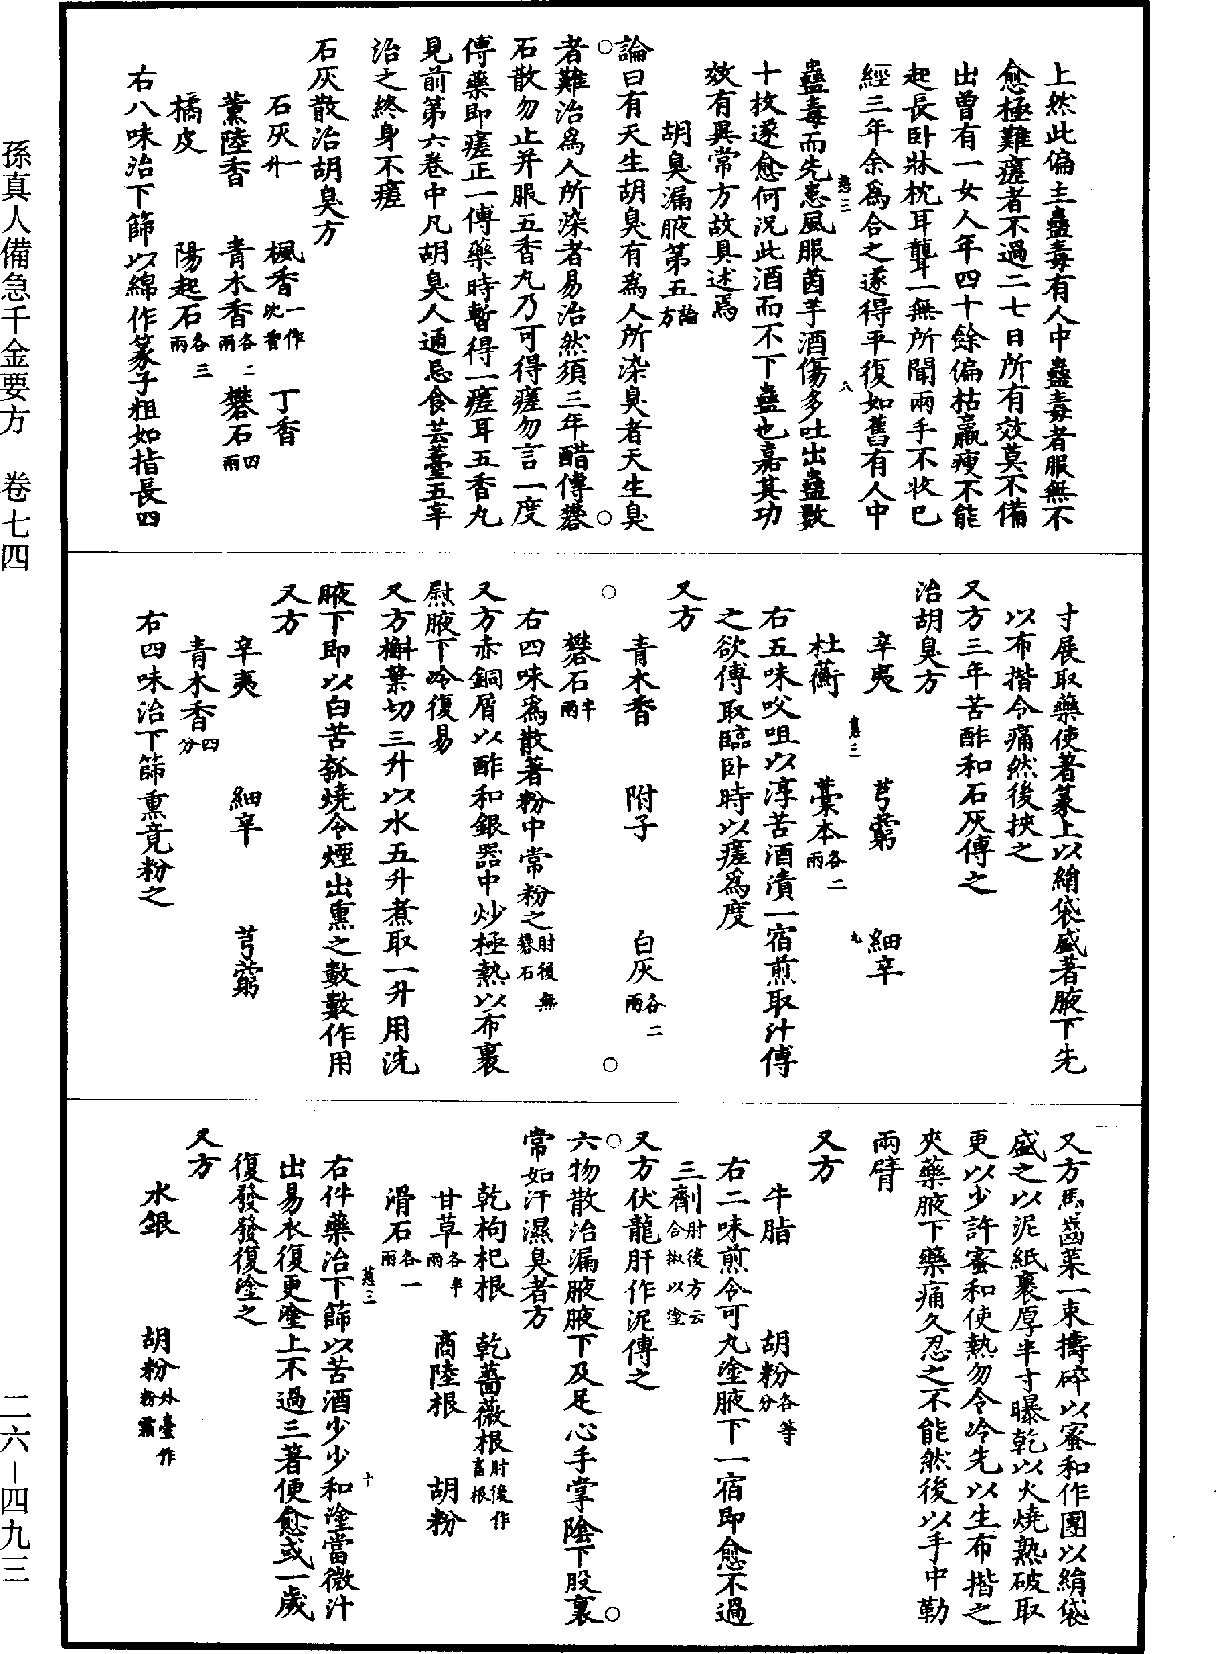 上然此偏主蠱毒有人中蠱毒者服無不
愈極難瘥者不過二七日所有效莫不備
出曾有一女人年四十餘偏枯羸瘦不能
起長卧牀枕耳聾一無所聞兩手不收已
經三年余爲合之遂得平復如舊有人中
蠱毒而先患風服茵芋酒傷多吐出蠱數
十枚遂愈何況此酒而不下蠱也嘉其功
效有異常方故具述焉
胡臭漏腋第五論方
論曰有天生胡臭有爲人所染臭者天生臭
者難治爲人所染者易治然須三年醋傅礬
石散勿止并服五香丸乃可得瘥勿言一度
傅藥即瘥正一傅藥時暫得一瘥耳五香丸
見前第六卷中凡胡臭人通忌食芸薹五辛
治之終身不瘥
石灰散治胡臭方
石灰一升 楓香一作沈香 丁香
薰陸香 青木香各二兩 礬石四兩
橘皮 陽起石各三兩
右八味治下篩以綿作篆子粗如指長四
寸展取藥使著篆上以絹袋盛著腋下先
以布揩令痛然後挾之
又方三年苦酢和石灰傅之
治胡臭方
辛夷 芎藭 細辛
杜蘅 藁本各二兩
右五味㕮咀以淳苦酒漬一宿煎取汁傅
之欲傅取臨卧時以瘥爲度
又方
青木香 附子 白灰各二兩
礬石半兩
右四味爲散著粉中常粉之肘後無礬石
又方赤銅屑以酢和銀器中炒極熱以布裹
慰腋下冷復易
又方槲葉切三升以水五升煮取一升用洗
腋下即以白苦瓠燒令煙出熏之數數作用
又方
辛夷 細辛 芎藭
青木香四分
右四味治下篩熏竟粉之
又方馬齒菜一束擣碎以蜜和作團以絹袋
盛之以泥紙裹厚半寸曝乾以火燒熟破取
更以少許蜜和使熱勿令冷先以生布揩之
夾藥腋下藥痛久忍之不能然後以手巾勒
兩臂
又方
牛脂 胡粉各等分
右二味煎令可丸塗腋下一宿即愈不過
三劑肘後方云合椒以塗
又方伏龍肝作泥傅之
六物散治漏腋腋下及足心手掌陰下股裏
常如汗濕臭者方
乾枸杞根 乾薔薇根肘後作畜根
甘草各半兩 商陸根 胡粉
滑石各一兩
右件藥治下篩以苦酒少少和塗當微汁
出易衣復更塗上不過三著便愈或一歲
復發發復塗之
又方
水銀 胡粉外臺作粉霜
孫真人備急千金要方 卷七四
二六－四九三